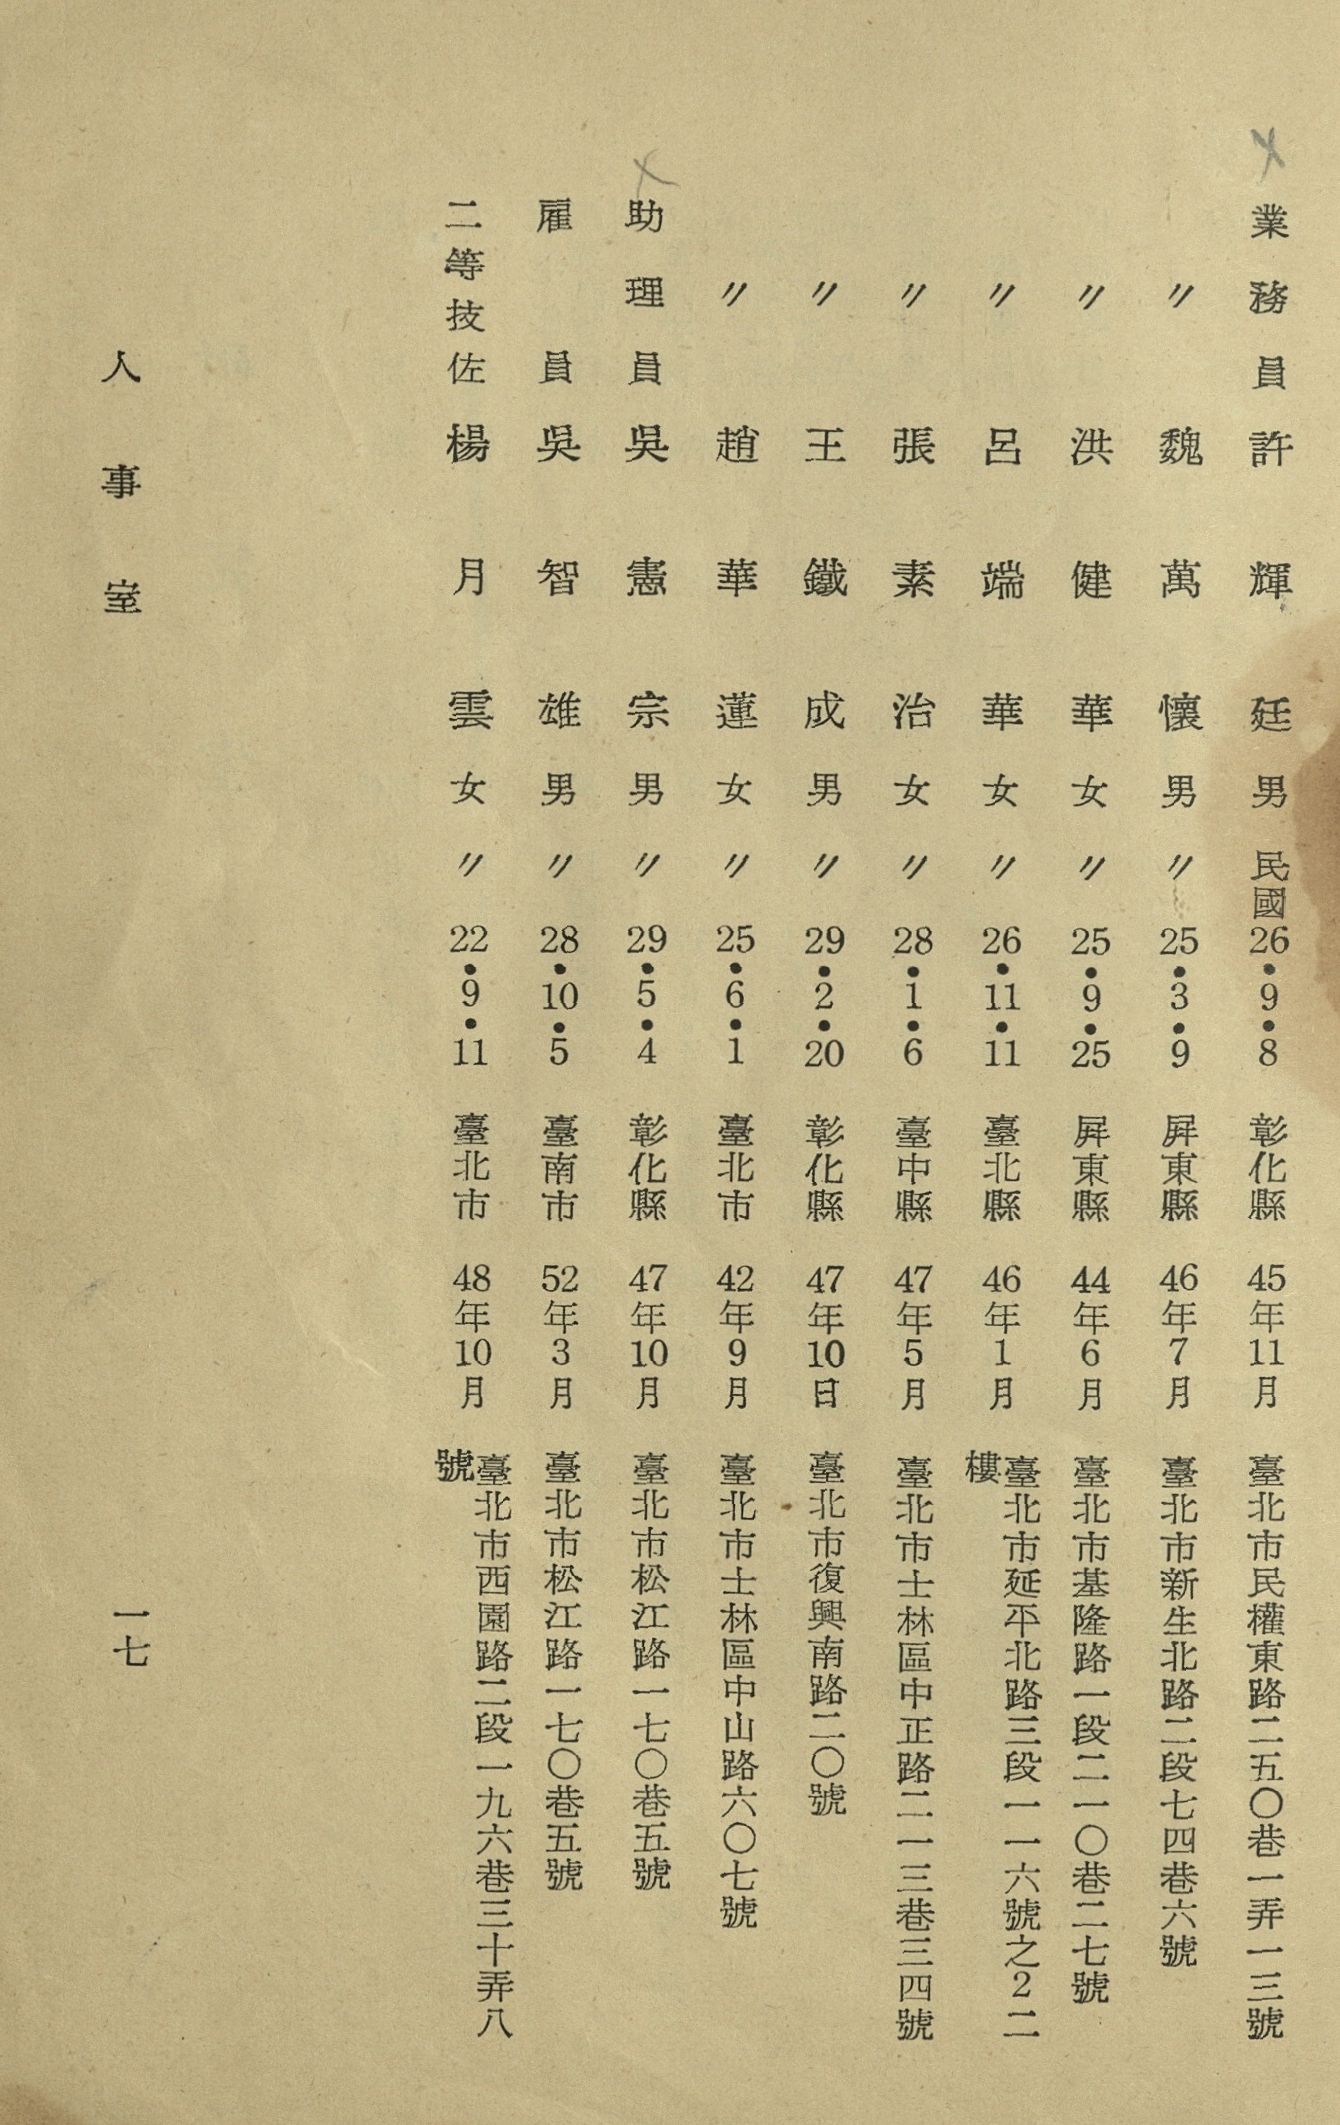 業務員 許輝廷 男 民國26•9•8 彰化縣 45年11月 臺北市民權東路二五〇巷一弄一三號
〃 魏萬懷 男 〃 25•3•9 屛東縣 46年7月 臺北市新生北路二段七四巷六號
〃 洪健華 女 〃 25•9•25 屛東縣 44年6月 臺北市基隆路一段二一〇巷二七號
〃 呂端華 女 〃 26•11•11 臺北縣 46年1月 臺北市延平北路三段一一六號之2二
樓
〃 張素治 女 〃 28•1•6 臺中縣 47年5月 臺北市士林區中正路二一三巷三四號
〃 王鐵成 男 〃 29•2•20 彰化縣 47年10日 臺北市復興南路二〇號
〃 趙華蓮 女 〃 25•6•1 臺北市 42年9月 臺北市士林區中山路六〇七號
助理員 吳憲宗 男 〃 29•5•4 彰化縣 47年10月 臺北市松江路一七〇巷五號
雇員 吳智雄 男 〃 28•10•5 臺南市 52年3月 臺北市松江路一七〇巷五號
二等技佐 楊月雲 女 〃 22•9•11 臺北市 48年10月 臺北市西園路二段一九六巷三十弄八
號
人事室
一七